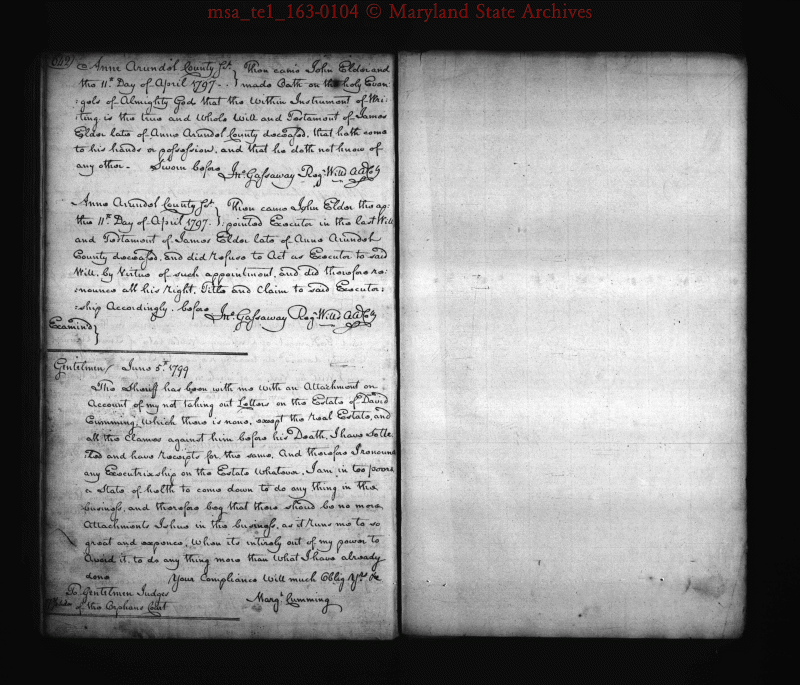 msa_te1_163-0104 © Maryland State Archives
Anne Arundel County Sct. } Then came John Elder and
the 11th Day of April 1797 - - } made Oath on the holy Evan:
:gels of Almighty God that the Within Instrument of Wri:
:ting is the true and Whole Will and Testament of James
Elder late of Anne Arundel County deceased, that hath come
to his hands or possession, and that he doth not know of
any other - Sworn before Jno. Gassaway Regr. Wills AA Coty
Anne Arundel County Sct. } Then came John Elder the ap:
the 11th Day of April 1797. } :pointed Executor in the last Will
and Testament of James Elder late of Anne Arundel
County deceased, and did refuse to Act as Executor to said
Will, by Virtue of such appointment, and did therefore re:
:nounce all his Right, Title and Claim to said Executor:
:ship Accordingly. before Jno. Gassaway Regr. Wills AA Coty
Examind }
Gentelmen / June 5th 1799
The Sheriff has been with me with an Attachment on
Account of my not taking out Letters on the Estate of David
Cumming, Which there is none, except the real Estate, and
all the Clames against him before his Death, I have Settle
:ted and have receipts for the same, And therefore I renounce
any Executrixship on the Estate Whatever, I am in too poore
a State of helth to come down to do any thing in the
business, and therefore beg that there should be no more
Attachments Ishue in the business, as it runs me to so
great and expence, When its intirely out of my power to
Avoid it, to do any thing more than What I have already
done Your Compliance Will much Oblig Yrs. &c
To Gentelmen Judges
of the Orphans Court Margt. Cumming